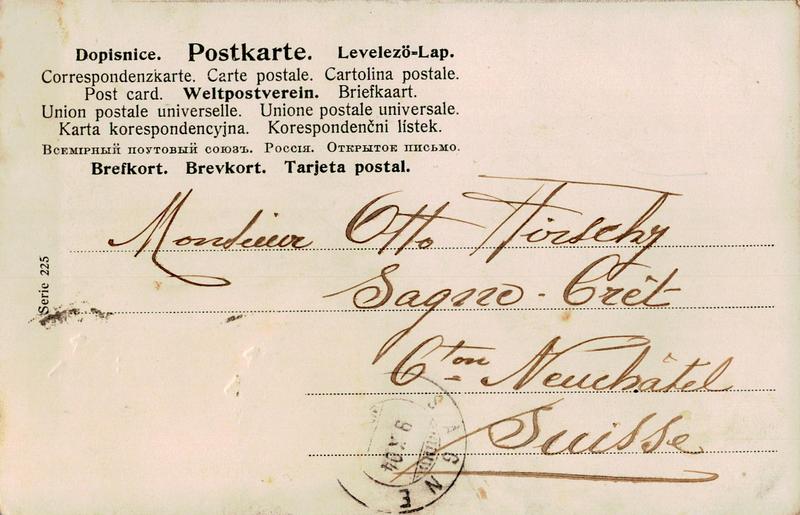 Dopisnice. Postkarte. Levelezö-Lap.
Correspondenzkarte. Carte postale. Cartolina postale.
Post card. Weltpostverein. Briefkaart.
Union postale universelle. Unione postale universale.
Karta korespondencyjna. Korespondenčni listek.
Всемірный поутовый союзъ. Россія. Открытое письмо.
Brefkort. Brevkort. Tarjeta postal.
Serie 225
Monsieur Otto
Sagne-Crêt
Cton Neuchâtel
Suisse
SAGNE
9.X.04